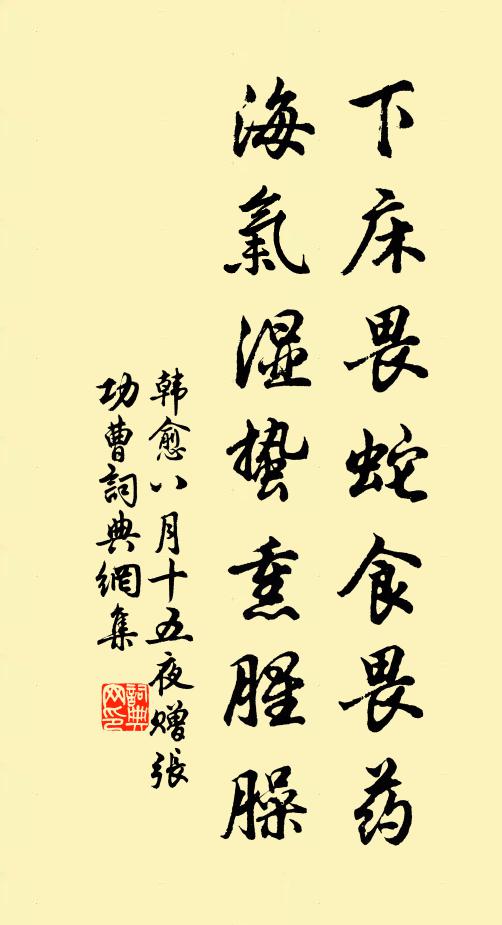 下床畏蛇食畏药
海氣湿蛰熏腥臊
韩愈八月十五夜赠張
功曹詞典網集
詞典网印